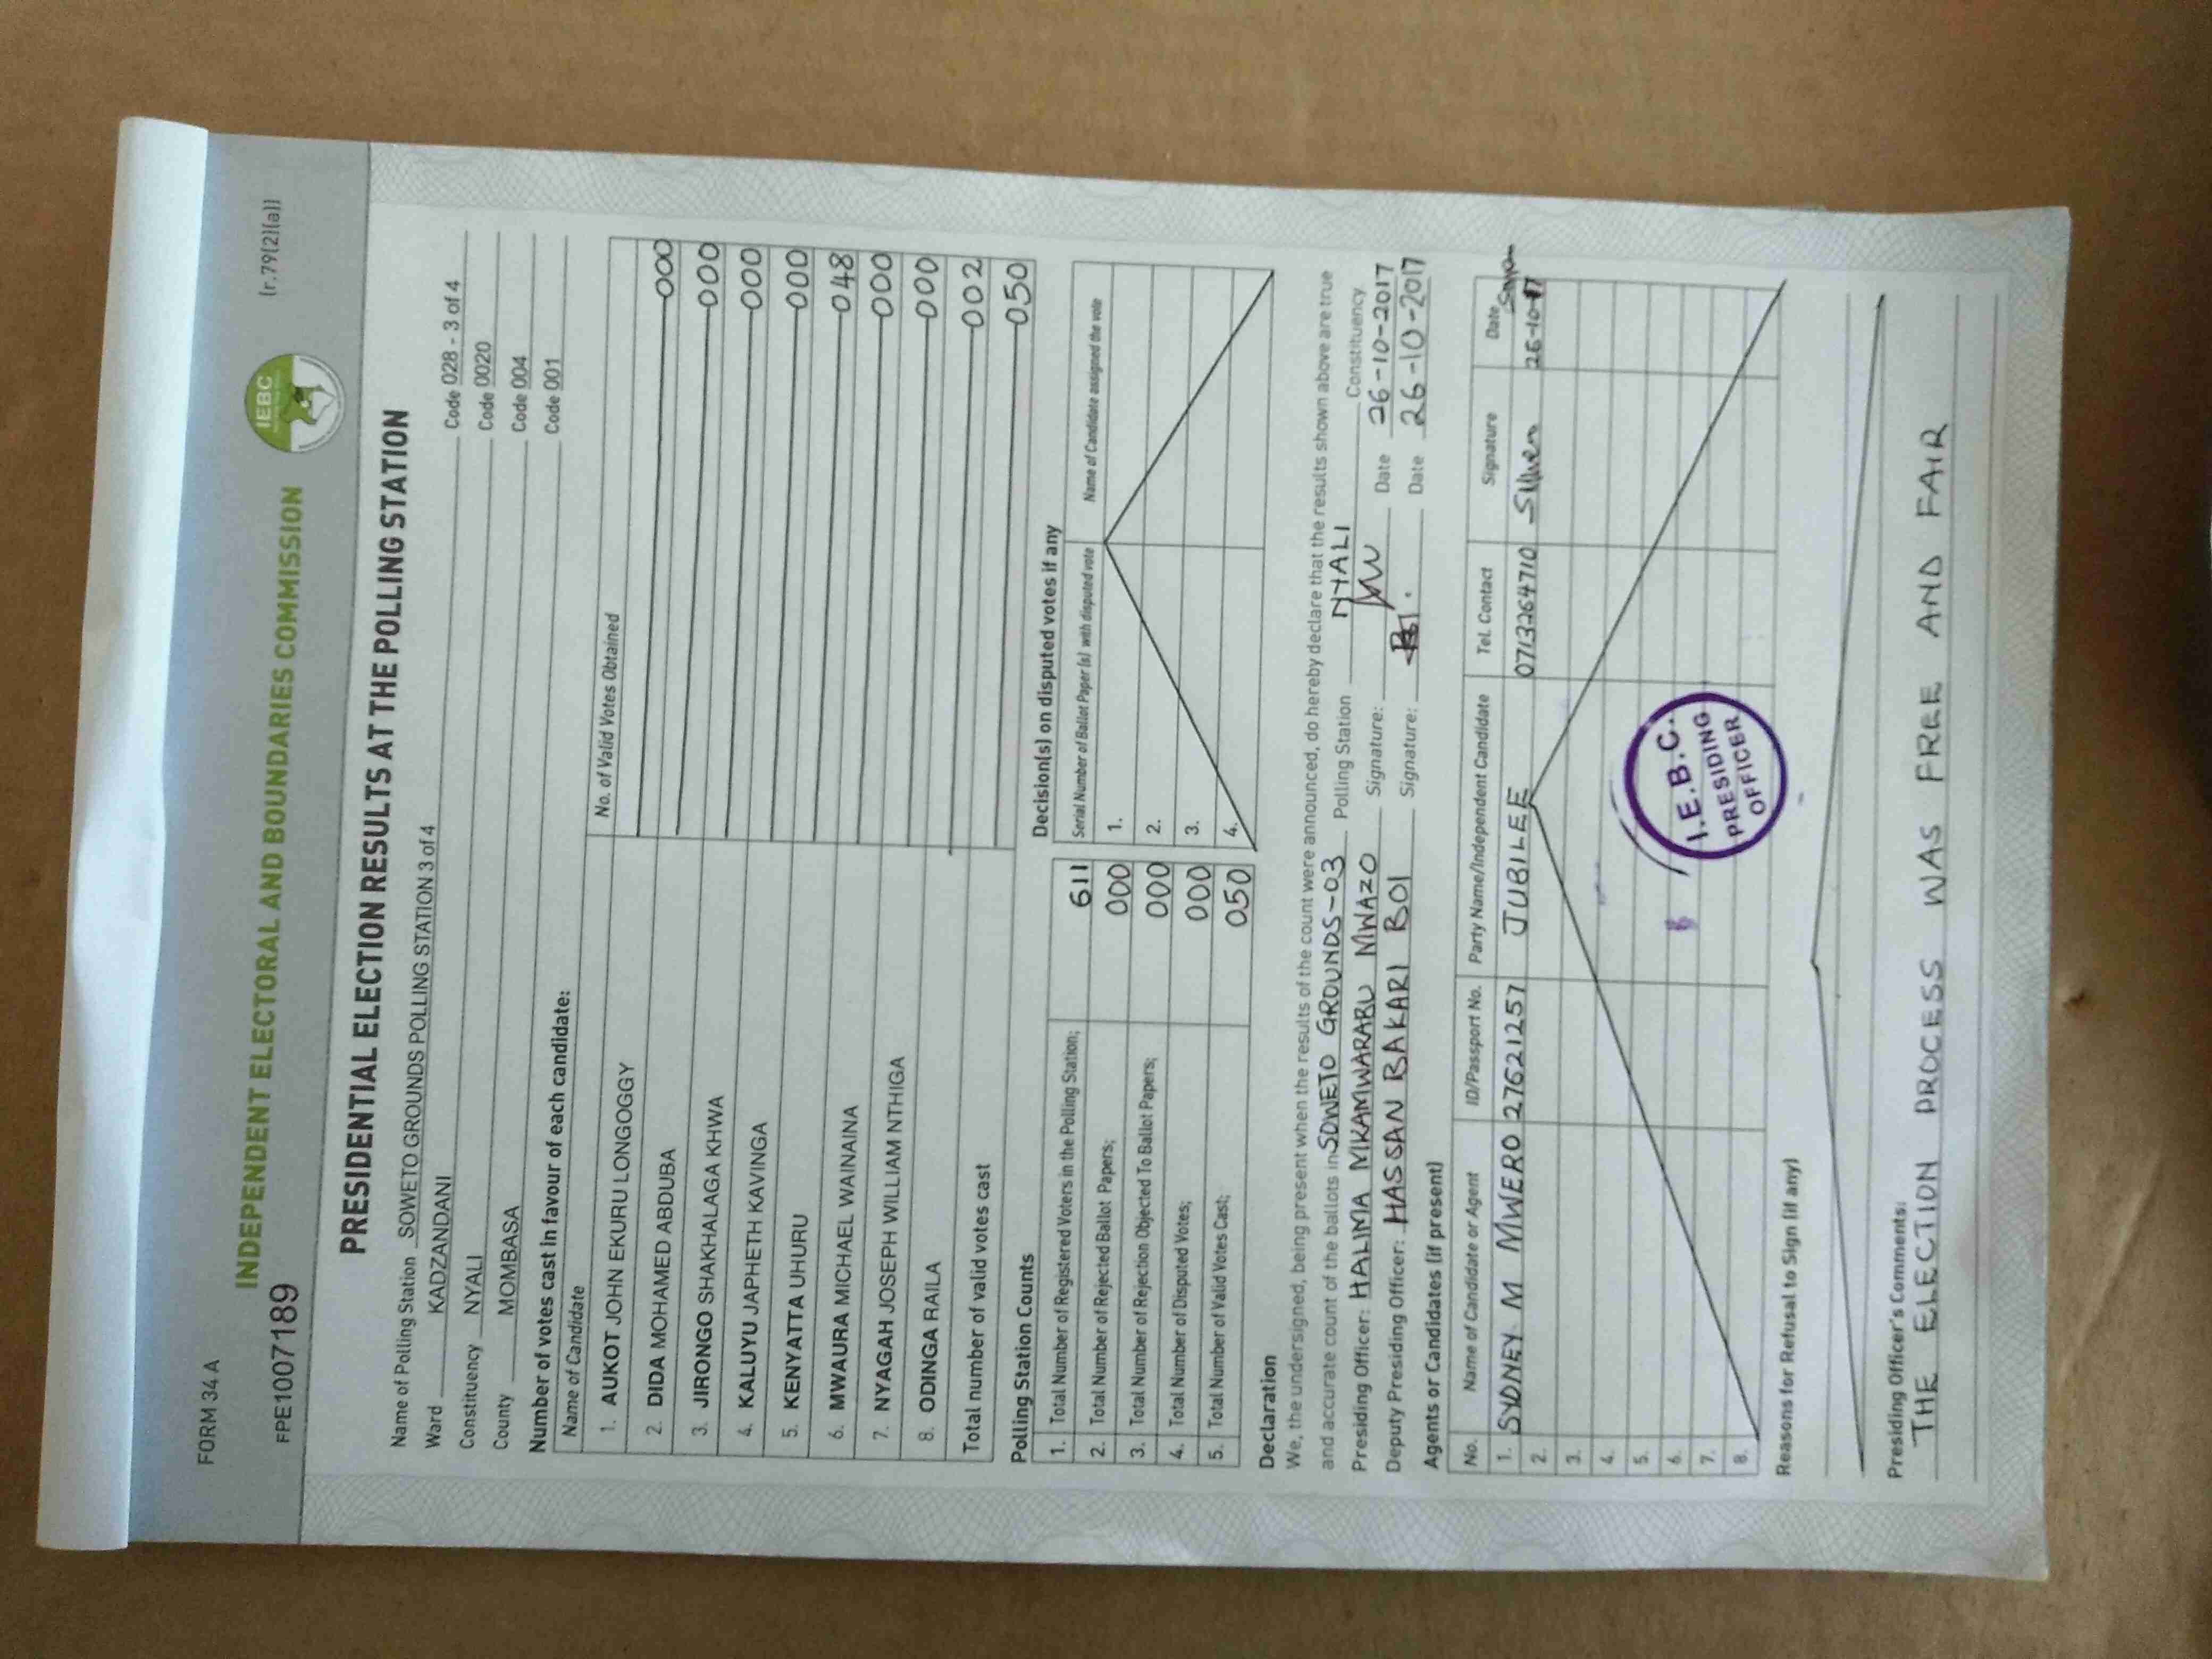 FORM 34 A
(r.79(2)(a))
INDEPENDENT ELECTORAL AND BOUNDARIES COMMISSION
IEBC
FPE1007189
PRESIDENTIAL ELECTION RESULTS AT THE POLLING STATION
Name of Polling Station SOWETO GROUNDS POLLING STATION 3 of 4 Code 028 - 3 of 4
Ward KADZANDANI Code 0020
Constituency NYALI Code 004
County MOMBASA Code 001
Number of votes cast in favour of each candidate:
Name of Candidate No. of Valid Votes Obtained
1. AUKOT JOHN EKURU LONGOGGY 000
2. DIDA MOHAMED ABDUBA 000
3. JIRONGO SHAKHALAGA KHWA 000
4. KALUYU JAPHETH KAVINGA 000
5. KENYATTA UHURU 048
6. MWAURA MICHAEL WAINAINA 000
7. NYAGAH JOSEPH WILLIAM NTHIGA 000
8. ODINGA RAILA 002
Total number of valid votes cast 050
Polling Station Counts
1. Total Number of Registered Voters in the Polling Station; 611
2. Total Number of Rejected Ballot Papers; 000
3. Total Number of Rejection Objected To Ballot Papers; 000
4. Total Number of Disputed Votes; 000
5. Total Number of Valid Votes Cast; 050
Decision(s) on disputed votes if any
Serial Number of Ballot Paper (s) with disputed vote Name of Candidate assigned the vote
1.
2.
3.
4.
Declaration
We, the undersigned, being present when the results of the count were announced, do hereby declare that the results shown above are true
and accurate count of the ballots in SOWETO GROUNDS-03 Polling Station NYALI Constituency
Presiding Officer: HALIMA MKAMWARABU MWAZO Signature: Date 26-10-2017
Deputy Presiding Officer: HASSAN BAKARI BOI Signature: Date 26-10-2017
Agents or Candidates (if present)
No. Name of Candidate or Agent ID/Passport No. Party Name/Independent Candidate Tel. Contact Signature Date
1. SYDNEY M MWERO 27621257 JUBILEE 0713264710 26-10-17
2.
3.
4.
5.
6.
7.
8.
I.E.B.C.
PRESIDING
OFFICER
Reasons for Refusal to Sign (if any)
Presiding Officer's Comments:
THE ELECTION PROCESS WAS FREE AND FAIR